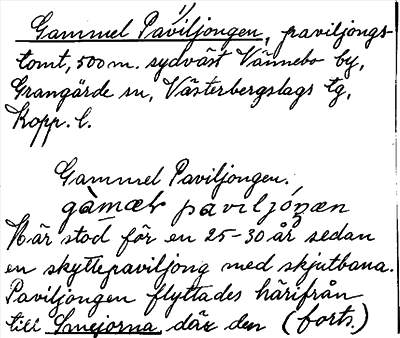 Gammel Paviljongen, paviljongs-
tomt, 500 m. sydväst Vännebo by,
Grangärde sn, Västerbergslags tg,
Kopp. l.
Gammel Paviljongen.
gàmæɫ paviljóŋæn
Här stod för en 25-30 år sedan
en skyttepaviljong med skjutbana.
Paviljongen flyttades härifrån
till Smejorna där den (forts.)